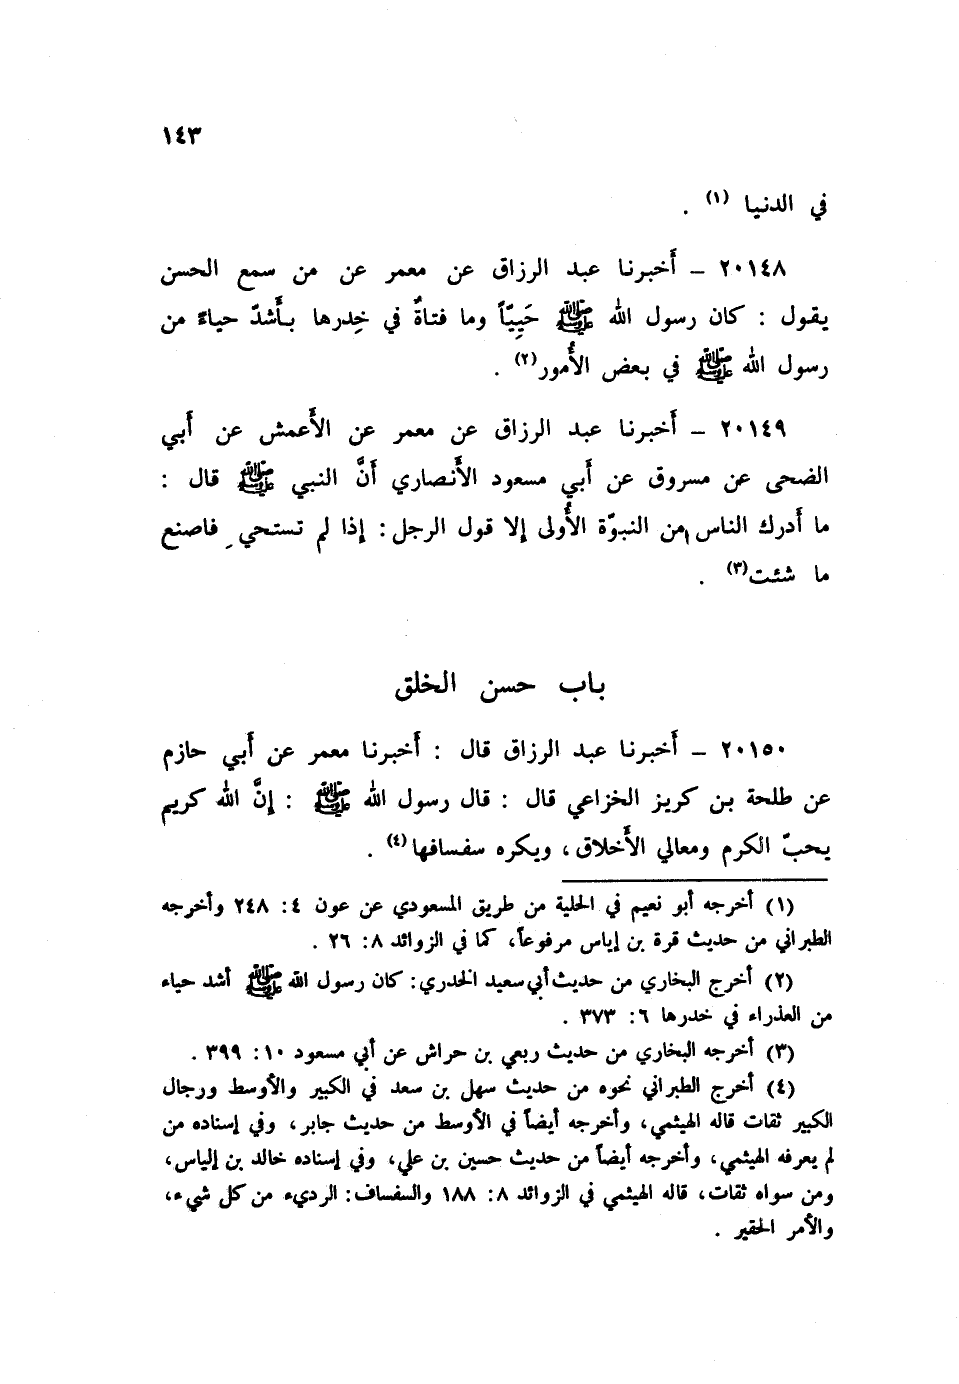 ١٤٣
في الدنيا (١) .
٢٠١٤٨ – أَخبرنا عبد الرزاق عن معمر عن من سمع الحسن
يقول : كان رسول الله ﷺ حَيِيّاً وما فتاةٌ في خِدرها بأَشدّ حياءً من
رسول الله ﷺ في بعض الأُمور(٢) .
٢٠١٤٩ – أَخبرنا عبد الرزاق عن معمر عن الأَعمش عن أَبي
الضحى عن مسروق عن أَبي مسعود الأَنصاري أَنَّ النبي ﷺ قال :
ما أَدرك الناس من النبوّة الأُولى إلا قول الرجل : إذا لم تستحي ِ فاصنع
ما شئت(٣) .
باب حسن الخلق
٢٠١٥٠ – أَخبرنا عبد الرزاق قال : أَخبرنا معمر عن أَبي حازم
عن طلحة بن كريز الخزاعي قال : قال رسول الله ﷺ : إنَّ الله كريم
يحبّ الكرم ومعالي الأَخلاق ، ويكره سفسافها(٤) .
(١) أخرجه أبو نعيم في الحلية من طريق المسعودي عن عون ٤: ٢٤٨ وأخرجه
الطبراني من حديث قرة بن إياس مرفوعاً، كما في الزوائد ٨: ٢٦ .
(٢) أخرج البخاري من حديث أبي سعيد الخدري: كان رسول الله ﷺ أشد حياء
من العذراء في خدرها ٦: ٣٧٣ .
(٣) أخرجه البخاري من حديث ربعي بن حراش عن أبي مسعود ١٠: ٣٩٩ .
(٤) أخرج الطبراني نحوه من حديث سهل بن سعد في الكبير والأوسط ورجال
الكبير ثقات قاله الهيثمي، وأخرجه أيضاً في الأوسط من حديث جابر، وفي إسناده من
لم يعرفه الهيثمي، وأخرجه أيضاً من حديث حسين بن علي، وفي إسناده خالد بن إلياس،
ومن سواه ثقات، قاله الهيثمي في الزوائد ٨: ١٨٨ والسفساف: الرديء من كل شيء،
والأمر الحقير .